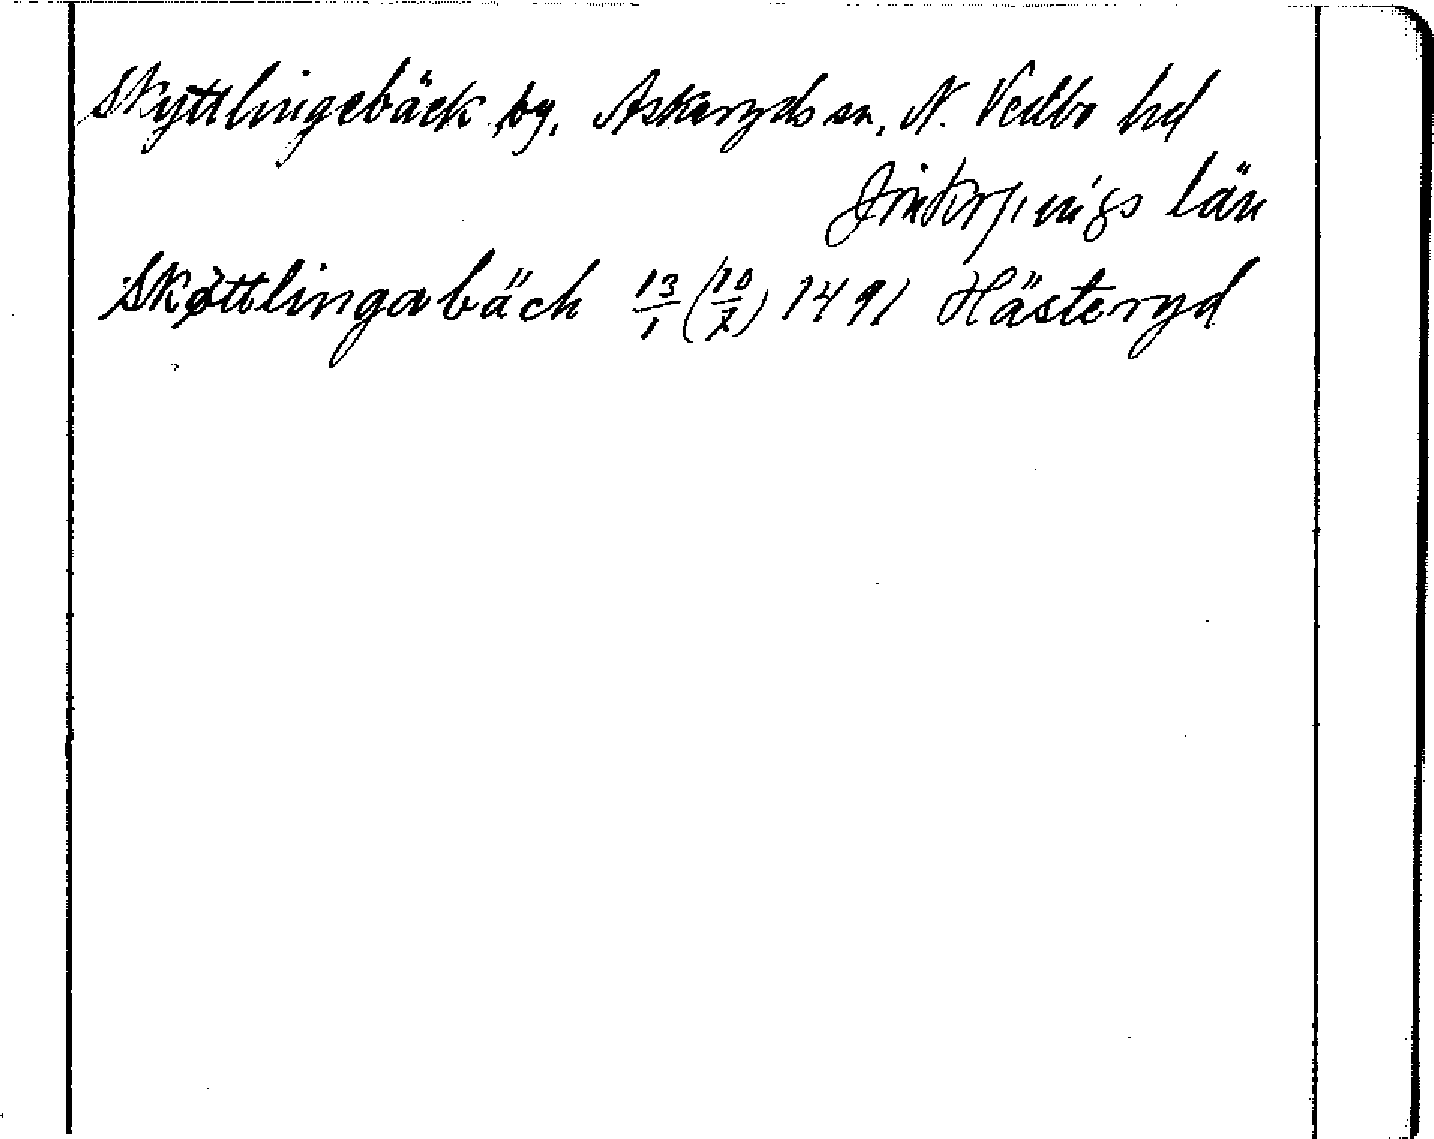 Skyttlingebäck, by, Askeryds sn, N. Vedbo hd
Jönköpings län
Skøttlingabäch 13/1 (10/2) 1491 Hästeryd